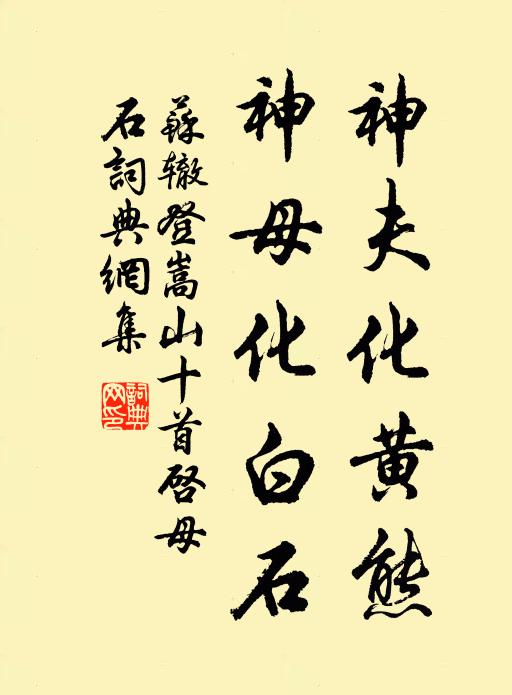 神夫化黄熊
神母化白石
蘇轍登嵩山十首啓母
石詞典網集
詞典
网印